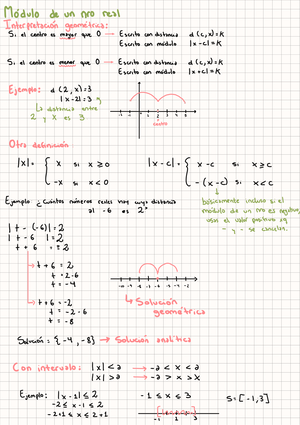 Módulo de un nro real
Interpretación geométrica:
Si el centro es mayor que 0 → Escrito con distancia d (c,x)=K
Escrito con módulo |x-c|=K
Si el centro es menor que 0 → Escrito con distancia d (c,x)=K
Escrito con módulo |x+c|=K
Ejemplo: d (2,x)=3
|x-2|=3
↳ distancia entre
2 y x es 3
centro
Otra definición
|x|= { x si x≥0
-x si x<0
|x-c|= { x-c si x≥c
-(x-c) si x<c
básicamente incluso si el
módulo de un nro es negativo,
- y - se cancelan.
Ejemplo ¿Cuántos números reales hay cuya distancia
al -6 es 2"
|t-(-6)|=2
|t+6|=2
t+6=2
t=2-6
t=-4
t+6=-2
t=-2-6
t=-8
↳ Solución
geométrica
Solución={-4,-8} → Solución analítica
Con intervalo: |x|<a → -a<x<a
|x|>a → -a>x>a
Ejemplo: |x-1|≤2
-2≤x-1≤2
-2+1≤x≤2+1
-1≤x≤3
S=[-1,3]